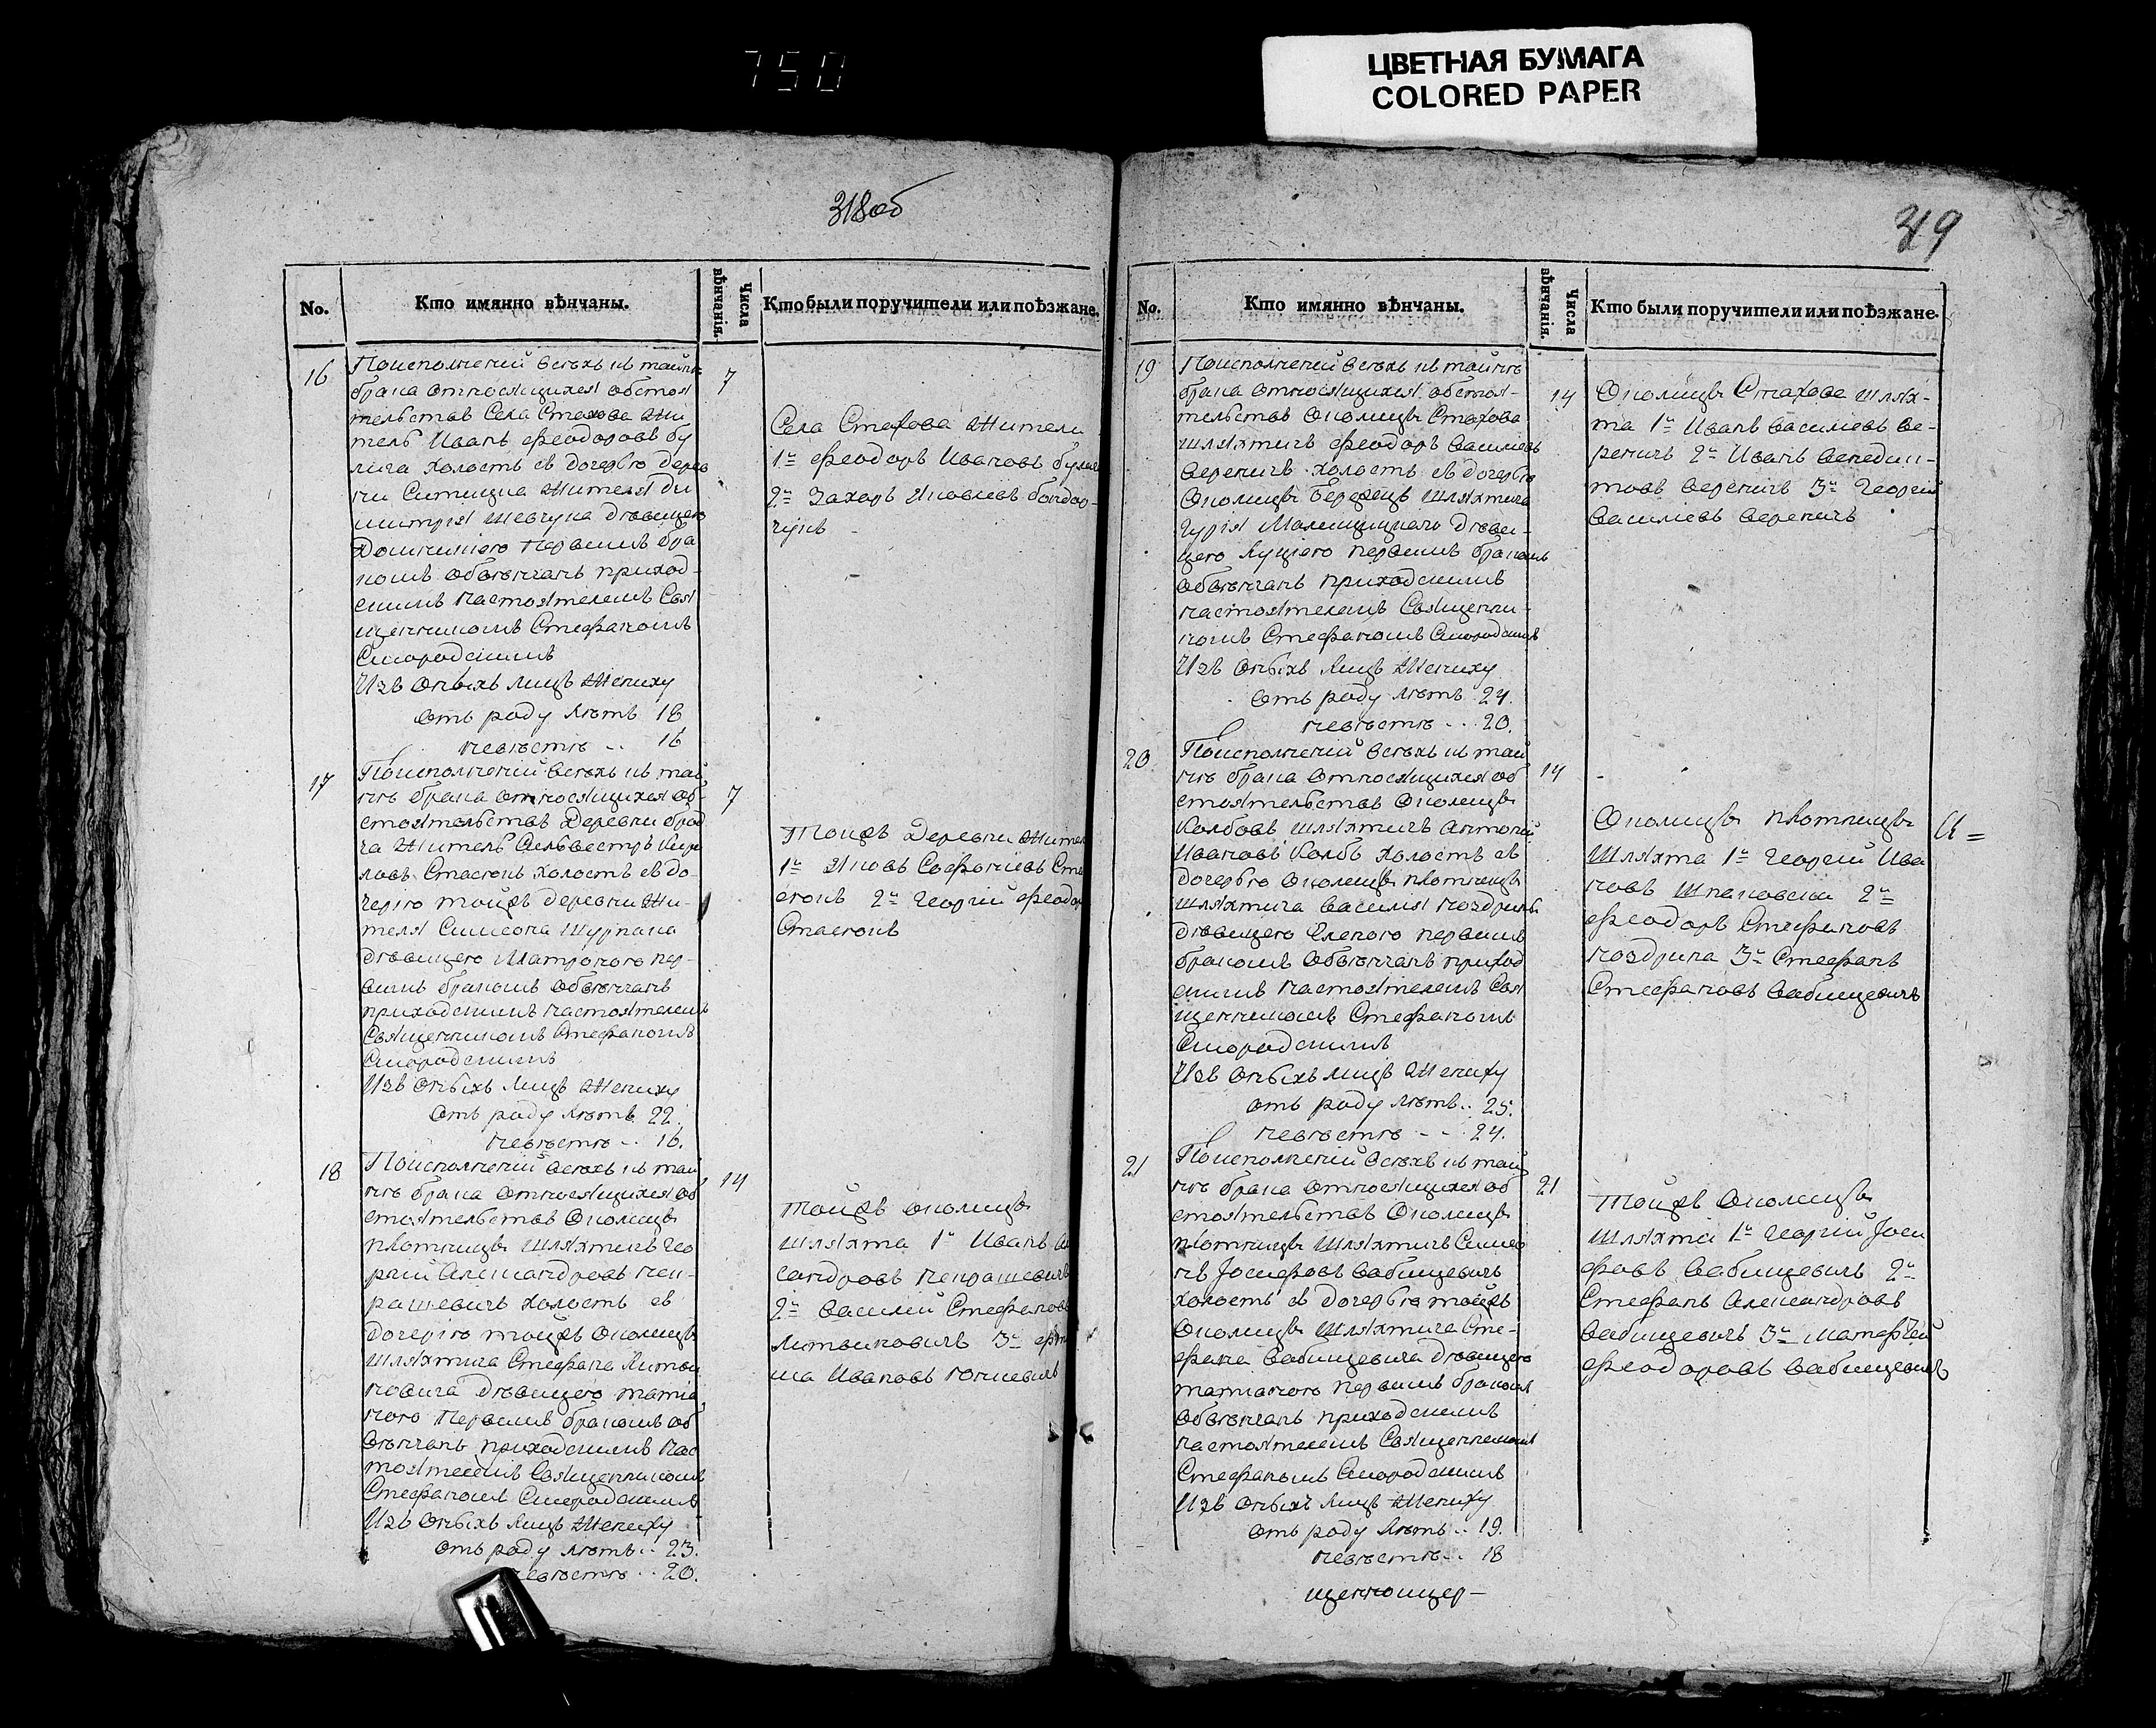 750
ЦВЕТНАЯ БУМАГА
COLORED PAPER
318об
319
No.
Кто имянно вѣнчаны.
Числа вѣнчанія.
Кто были поручители или поѣзжане.
16
Поисполненій всѣхъ къ тайнѣ
брака относящихся обстоя
тельствъ Села Стахова жи
тель Иванъ Феодоровъ бу
лыга холостъ съ дочерью дерев
ни Ситицка жителя Ди
митрія Шевчука дѣвицею
Домникіею первымъ бра
комъ обвѣнчанъ приход-
скимъ настоятелемъ Свя
щенникомъ Стефаномъ
Смородскимъ
Изъ оныхъ лицъ жениху
отъ роду лѣтъ 18
невѣстѣ .. 16
7
Села Стахова жители
1й Феодоръ Ивановъ булыга
2й Захаръ Яковлевъ бондар-
чукъ -
17
Поисполненій всѣхъ къ тай
нѣ брака относящихся об-
стоятельствъ Деревни брод
ча житель Сильвестръ Кири
ловъ Стасюкъ холостъ съ до-
черію тойжъ деревни жи-
теля Симеона Шурпака
дѣвицею Матроною пер-
вымъ бракомъ обвѣнчанъ
приходскимъ настоятелемъ
Священникомъ Стефаномъ
Смородскимъ
Изъ оныхъ лицъ жениху
отъ роду лѣтъ 22.
невѣстѣ .. 16.
7
Тойжъ Деревни жители
1й Яковъ Софоніевъ Ста
сюкъ 2й Георгій Феодор
Стасюкъ
18
Поисполненій всѣхъ къ тай
нѣ брака относящихся об
стоятельствъ Околицы
плотницы шляхтичъ Гео
ргій Александровъ Неп-
рашевичъ холостъ съ
дочерію тойжъ Околицы
шляхтича Стефана Литви
новича дѣвицею татіа
ною первымъ бракомъ об
вѣнчанъ приходскимъ нас
тоятелемъ Священникомъ
Стефаномъ Смородскимъ
Изъ оныхъ лицъ жениху
отъ роду лѣтъ .. 23.
невѣстѣ .. 20.
14
Тойжъ околицы
шляхта 1й Иванъ
сандровъ Непрашевичъ
2й Василій Стефановъ
Литвиновичъ 3й
ма Ивановъ
No.
Кто имянно вѣнчаны.
Числа вѣнчанія.
Кто были поручители или поѣзжане.
19
Поисполненій всѣхъ къ тайнѣ
брака относящихся обстоя-
тельствъ Околицы Стахова
шляхтичъ Феодоръ Василіевъ
Вереничъ холостъ съ дочерью
Околицы Бережцъ шляхтича
Гурія Малишицкаго дѣви-
цею Луціею первымъ бракомъ
обвѣнчанъ приходскимъ
настоятелемъ Священни-
комъ Стефаномъ Смородскимъ
Изъ оныхъ лицъ жениху
отъ роду лѣтъ 24.
невѣстѣ .. 20.
14
Околицы Стахова шлях-
та 1й Иванъ Василіевъ Ве-
реничъ 2й Иванъ Венедик-
товъ Вереничъ 3й Георгій
Василіевъ Вереничъ
20
Поисполненій всѣхъ къ тай
нѣ брака относящихся об
стоятельствъ Околицы
Колбовъ шляхтичъ Антоній
Ивановъ Колбъ холостъ съ
дочерью Околицы плотницы
шляхтича Василія Ноздрина
дѣвицею Еленою первымъ
бракомъ обвѣнчанъ приход
скимъ настоятелемъ Свя
щенникомъ Стефаномъ
Смородскимъ
Изъ оныхъ лицъ жениху
отъ роду лѣтъ .. 25.
невѣстѣ - - 24.
14
Околицы плотницы
Шляхта 1й Георгій Ива
новъ Шпаковскій 2й
Феодоръ Стефановъ
Ноздрина 3й Стефанъ
Стефановъ Вабищевичъ
21
Поисполненій всѣхъ къ тай
нѣ брака относящихся об
стоятельствъ Околицы
плотницы шляхтичъ Симео
нъ Іосифовъ Вабищевичъ
холостъ съ дочерью тойжъ
Околицы шляхтича Сте-
фана Вабищевича дѣвицею
татіаною первымъ бракомъ
обвѣнчанъ приходскимъ
настоятелемъ Священникомъ
Стефаномъ Смородскимъ
Изъ оныхъ лицъ жениху
отъ роду лѣтъ .. 19.
невѣстѣ .. 18
21
Тойжъ Околицы
шляхта 1й Георгій Іоси
фовъ Вабищевичъ 2й
Стефанъ Александровъ
Вабищевичъ 3й Матфей
Феодоровъ Вабищевичъ
щенноцер-